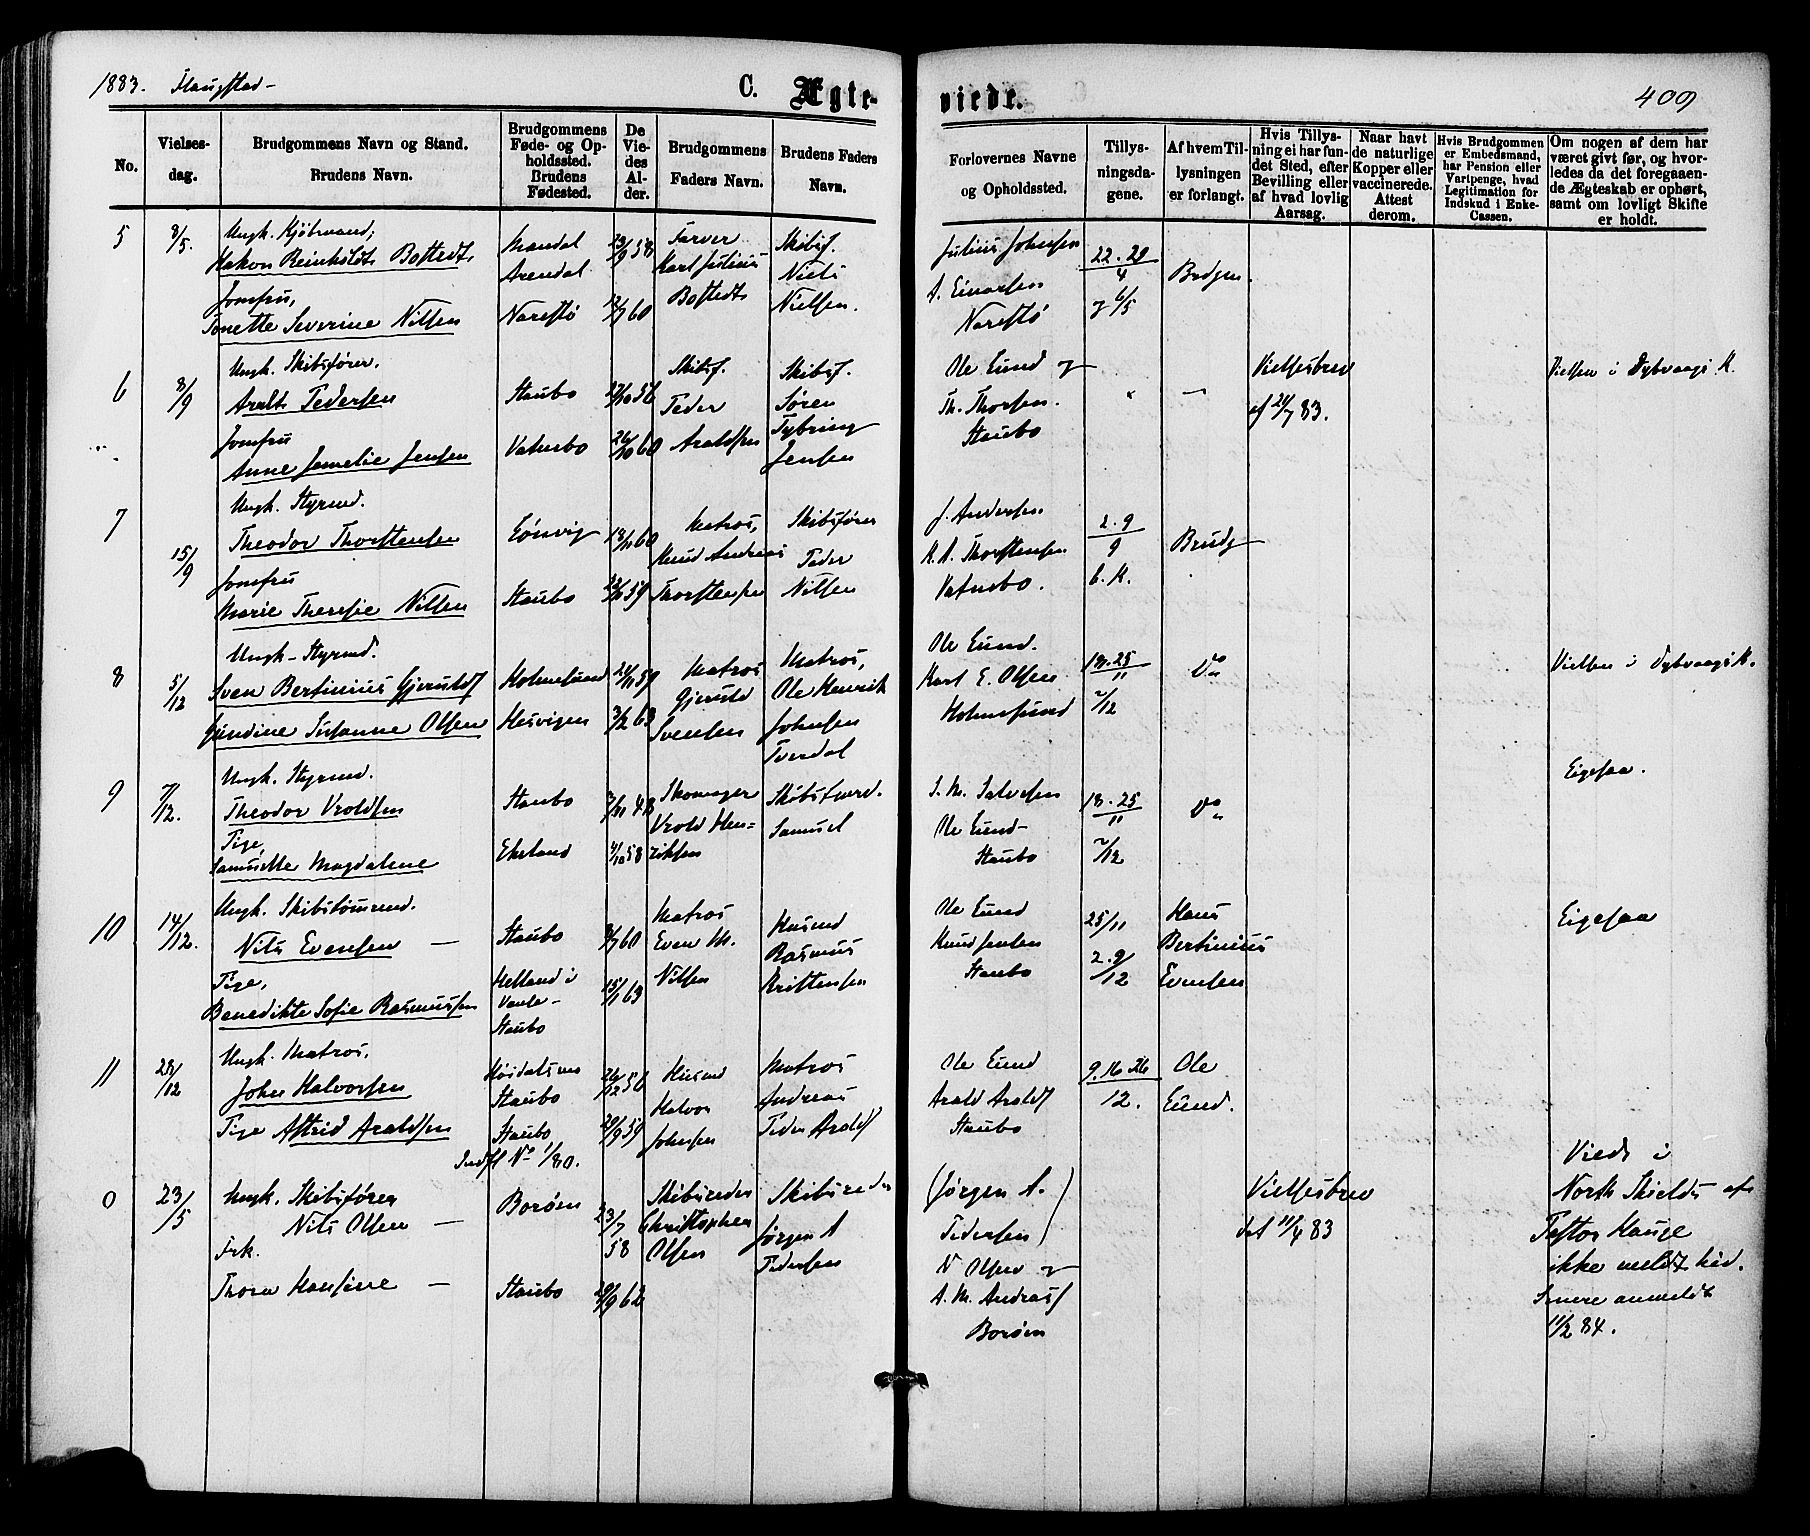 1883. Flangstad-
C. Ægte-
viede.
409
No.
Vielses-
dag.
Brudgommens Navn og Stand.
Brudens Navn.
Brudgommens
Føde- og Op-
holdssted.
Brudens
Fødested.
De
Vie-
des
Al-
der.
Brudgommens
Faders Navn.
Brudens Faders
Navn.
Forlovernes Navne
og Opholdssted.
Tillys-
ningsda-
gene.
Af hvem Til-
lysningen
er forlangt.
Hvis Tillys-
ning ei har fun-
det Sted, efter
Bevilling eller
af hvad lovlig
Aarsag.
Naar havt
de naturlige
Kopper eller
vaccinerede.
Attest
derom.
Hvis Brudgommen
er Embedsmand,
har Pension eller
Vartpenge, hvad
Legitimation for
Indskud i Enke-
Cassen.
Om nogen af dem har
været givt før, og hvor-
ledes da det foregaaen-
de Ægteskab er ophørt,
samt om lovligt Skifte
er holdt.
5
8/5.
Ungk. Kjøbmand,
Hakon Reinholdt Bostedt,
Jomfru,
Tonette Severine Nilsen
Mandal
Arendal
Narestø
23/9 58
12/7 60
Farver
Karl Julius
Bostedt
Skibsf.
Niels
Nielsen.
Julius Johnsen
A. Einarsen
Narestø
22. 29
4
& 6/5
Brdgm.
6
8/9
Ungk. Skibsfører.
Aralt Pedersen
Jomfru
Anne Jamelie Jensen
Staubo
Vatnebo
56
26/10 60
Skibsf.
Peder
Araldsen
Skibsf.
Søren
Tybring
Jensen
Ole Eund &
Th. Thorsen.
Staubo
Vielsesbrev
af 21/7 83.
Vielsen i Dybvaags K.
7
15/9
Ungk. Styrmd.
Theodor Thorstensen
Jomfru
Marie Theresie Nilsen
Lønvig
Staubo
18/11 60
59
Matros,
Knud Andreas
Thorstensen
Skibsfører
Peder
Nilsen
J. Andersen
K. A. Thorstensen
Vatnebo.
2. 9
9
b. K.
Brudg
8
5/12
Ungk- Styrmd.
Sven Bertinius Gjeruldsf
Gundine Susanne Olsen
Holmesund
Hesvigen
21/11 59
3/2 63
Matros
Gjeruld
Svensen
Matros,
Ole Henrik
Johnsen
Tverdal
Ole Eund.
Karl E. Olsen
Holmesund
18. 25
11
2/12
Do
Vielsen i Dybvaags K.
9
7/12.
Ungk. Styrmd.
Theodor Vroldsen
Pige,
Samuette Magdalene
Staubo
Ekeland
3/11 48
4/10 58
Skomager
Vrold Hen-
riksen
Skibstmrd.
Samuel
S. M. Salvesen
Ole Eund-
Staubo
18. 25
11
2/12
Do
Eigesaa.
10
14/12.
Ungk. Skibstømrmd.
Nils Evensen —
Pige,
Benedikte Sofie Rasmussen
Staubo
Helland i
Vanse-
Staubo
3/7 60
15/1 63
Matros
Even M.
Nilsen
Husmd
Rasmus
Kristensen
Ole Eund
Knud Jensen
Staubo
25/11
2. 9/12
Hans
Bertinius
Evensen
Eigesaa
11
28/12
Ungk. Matros,
John Halvorsen
Pige Astrid Araldsen
Staubo
Staubo
Indfl No 1/80.
26/12 50
29/9 59
Husmd
Halvor
Johnsen
Matros
Andreas
Peder Araldsf
Ole Eund
Arald Araldsf
Staubo
9. 16. 26
12.
Ole
Eund.
0
23/5
Ungk. Skibsfører
Nils Olsen —
Frk.
Thora Hansine —
Borøen
Staubo
23/7
58
29/9 62
Skibsreder
Christopher
Olsen
Skibsreder
Jørgen A
Pedersen
(Jørgen A.
Pedersen)
N Olsen &
A. M. Andreasf
Borøen
Vielsesbrev
dat 11/4 83
Viede i
North Shields af
Pastor Hauge
ikke meldt hid.
Senere anmeldt
11/2 84.